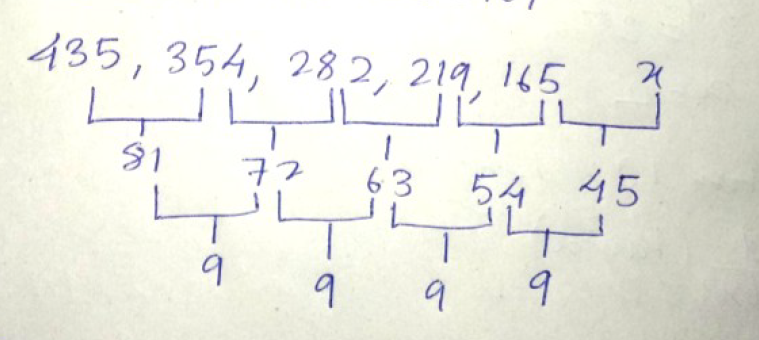 435, 354, 282, 219, 165 x
81 72 63 54 45
9 9 9 9